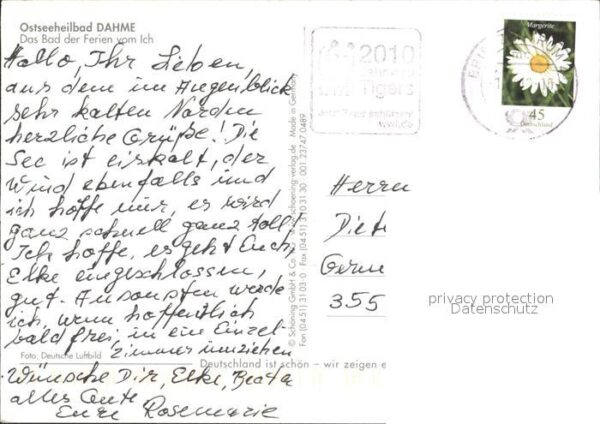 Ostseeheilbad DAHME
Das Bad der Ferien vom Ich
Hallo, Ihr Lieben,
aus dem im Augenblick
sehr kalten Norden
herzliche Grüße! Die
See ist eiskalt, der
Wind ebenfalls und
ich hoffe nur, es wird
ganz schnell ganz toll.
Ich hoffe, es geht Euch,
Elke eingeschlossen,
gut. Ansonsten werde
ich, wenn hoffentlich
bald frei, in ein Einzel-
zimmer umziehen
Foto: Deutsche Luftbild
Deutschland ist schön – wir zeigen e
Wünsche Dir, Elke, Beata
alles Gute
Eure Rosemarie
© Schöning GmbH & Co.
Fax (04 51) 3 10 31 30 001 23747 0489
Made in Germany
Fon (04 51) 31 03-0
2010
Tigers
Margerite
45
Deutschland
Herrn
Diete
355
privacy protection
Datenschutz